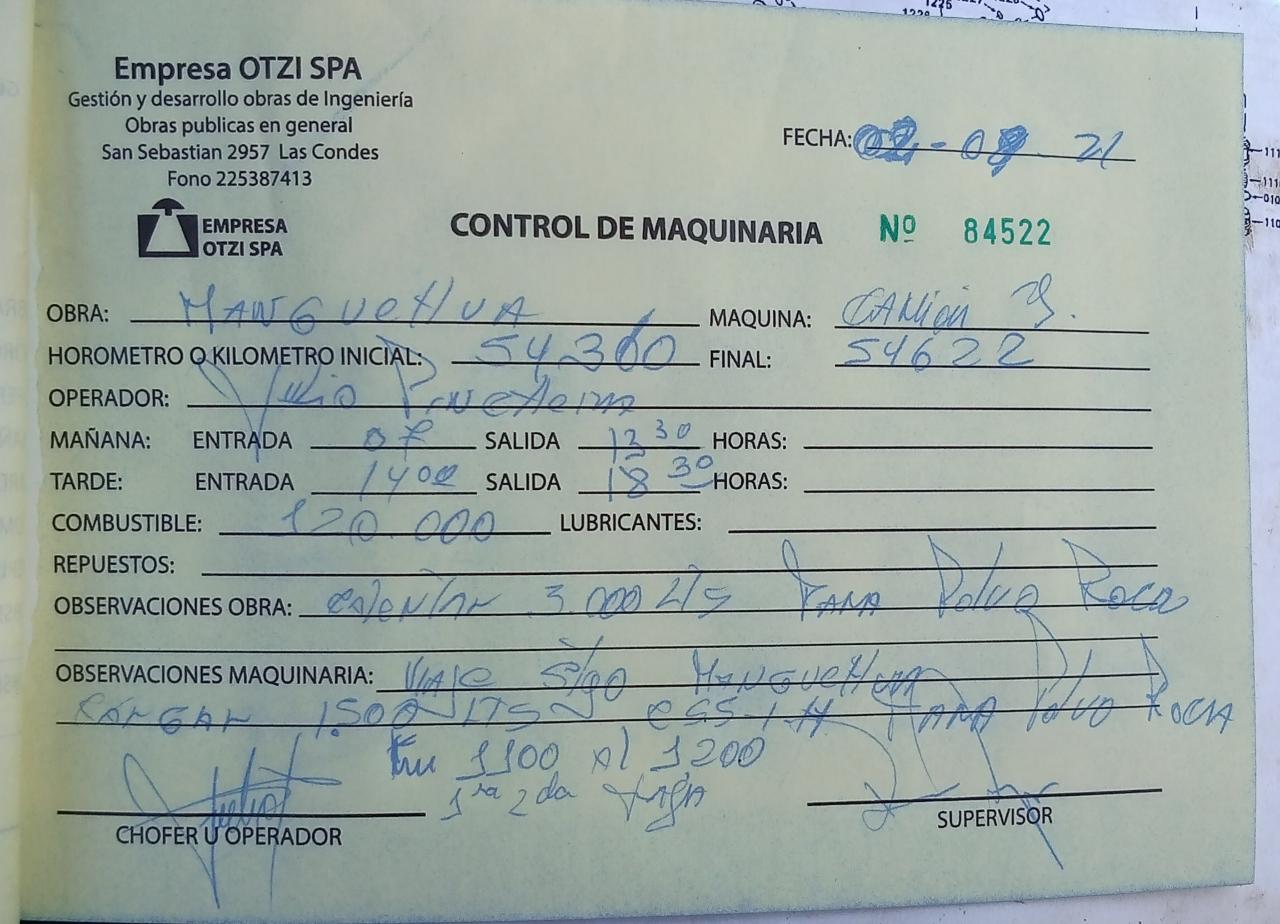 Empresa OTZI SPA
Gestión y desarrollo obras de Ingeniería
Obras publicas en general
San Sebastian 2957 Las Condes
Fono 225387413
FECHA: 02-09-21
EMPRESA
OTZI SPA
CONTROL DE MAQUINARIA Nº 84522
OBRA: MANGUEHUA MAQUINA: CAMION
HOROMETRO O KILOMETRO INICIAL: 54.360 FINAL: 54622
OPERADOR: Julio
MAÑANA: ENTRADA 08 SALIDA 13 30 HORAS:
TARDE: ENTRADA 14 00 SALIDA 18 30 HORAS:
COMBUSTIBLE: 120.000 LUBRICANTES:
REPUESTOS:
OBSERVACIONES OBRA: 3.000 LTS PARA Polvo Roca
OBSERVACIONES MAQUINARIA: VIAJE Stgo MANGUEHUA
CARGAR 1.500 LTS CSS-1H PARA Polvo ROCA
Km 1100 Al 1200
1ra 2da FAJA
CHOFER U OPERADOR
SUPERVISOR